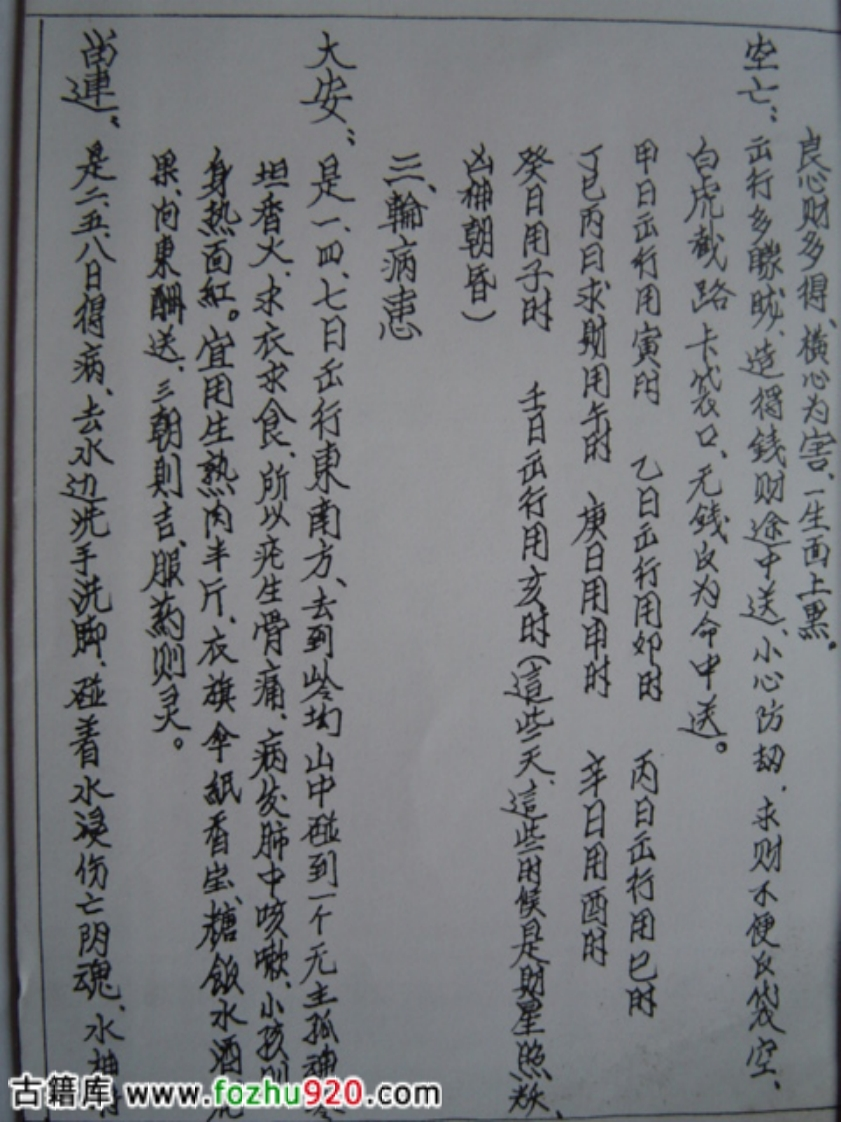 良心财多得、横心为害、一生面上黑。
空亡：出行多朦眬、造得銭财途中送、小心防劫、求财不便反袋空、
白虎截路卡袋口、无銭反为命中送。
甲日出行用寅时 乙日出行用卯时 丙日出行用巳时
丁巳丙日求财用午时 庚日用申时 辛日用酉时
癸日用子时 壬日出行用亥时（這些天、這些时候是财星照
凶神朝昏）
三、輪病患
大安：是一、四、七日出行東南方、去到岺坳山中碰到一个无主孤魂
坦香火、求衣求食、所以疕生骨痛、病发肺中咳嗽、小孩则
身热面紅。宜用生熟肉半斤、衣旗伞紙香宝、糖飯水酒
果、向東酬送、三朝則吉、服药则灵。
畄連：是二、五、八日得病、去水边洗手洗脚、碰着水浸伤亡阴魂、水神
古籍库 www.fozhu920.com